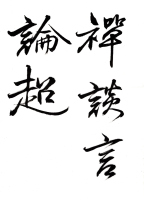 禪談言
論超